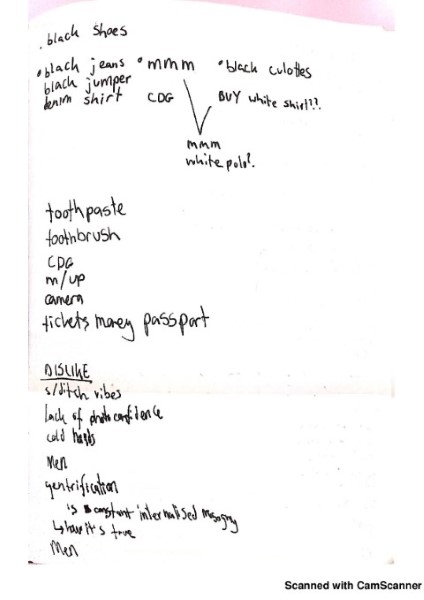 . black shoes
• black jeans • mmm • black culottes
black jumper
denim shirt CDG BUY white shirt??
mmm
white polo?
toothpaste
toothbrush
CDG
m/up
camera
tickets money passport
DISLIKE
s/ditch vibes
lack of photo confidence
cold hands
Men
gentrification
is constant internalised misogny
↳ it's true
Men
Scanned with CamScanner